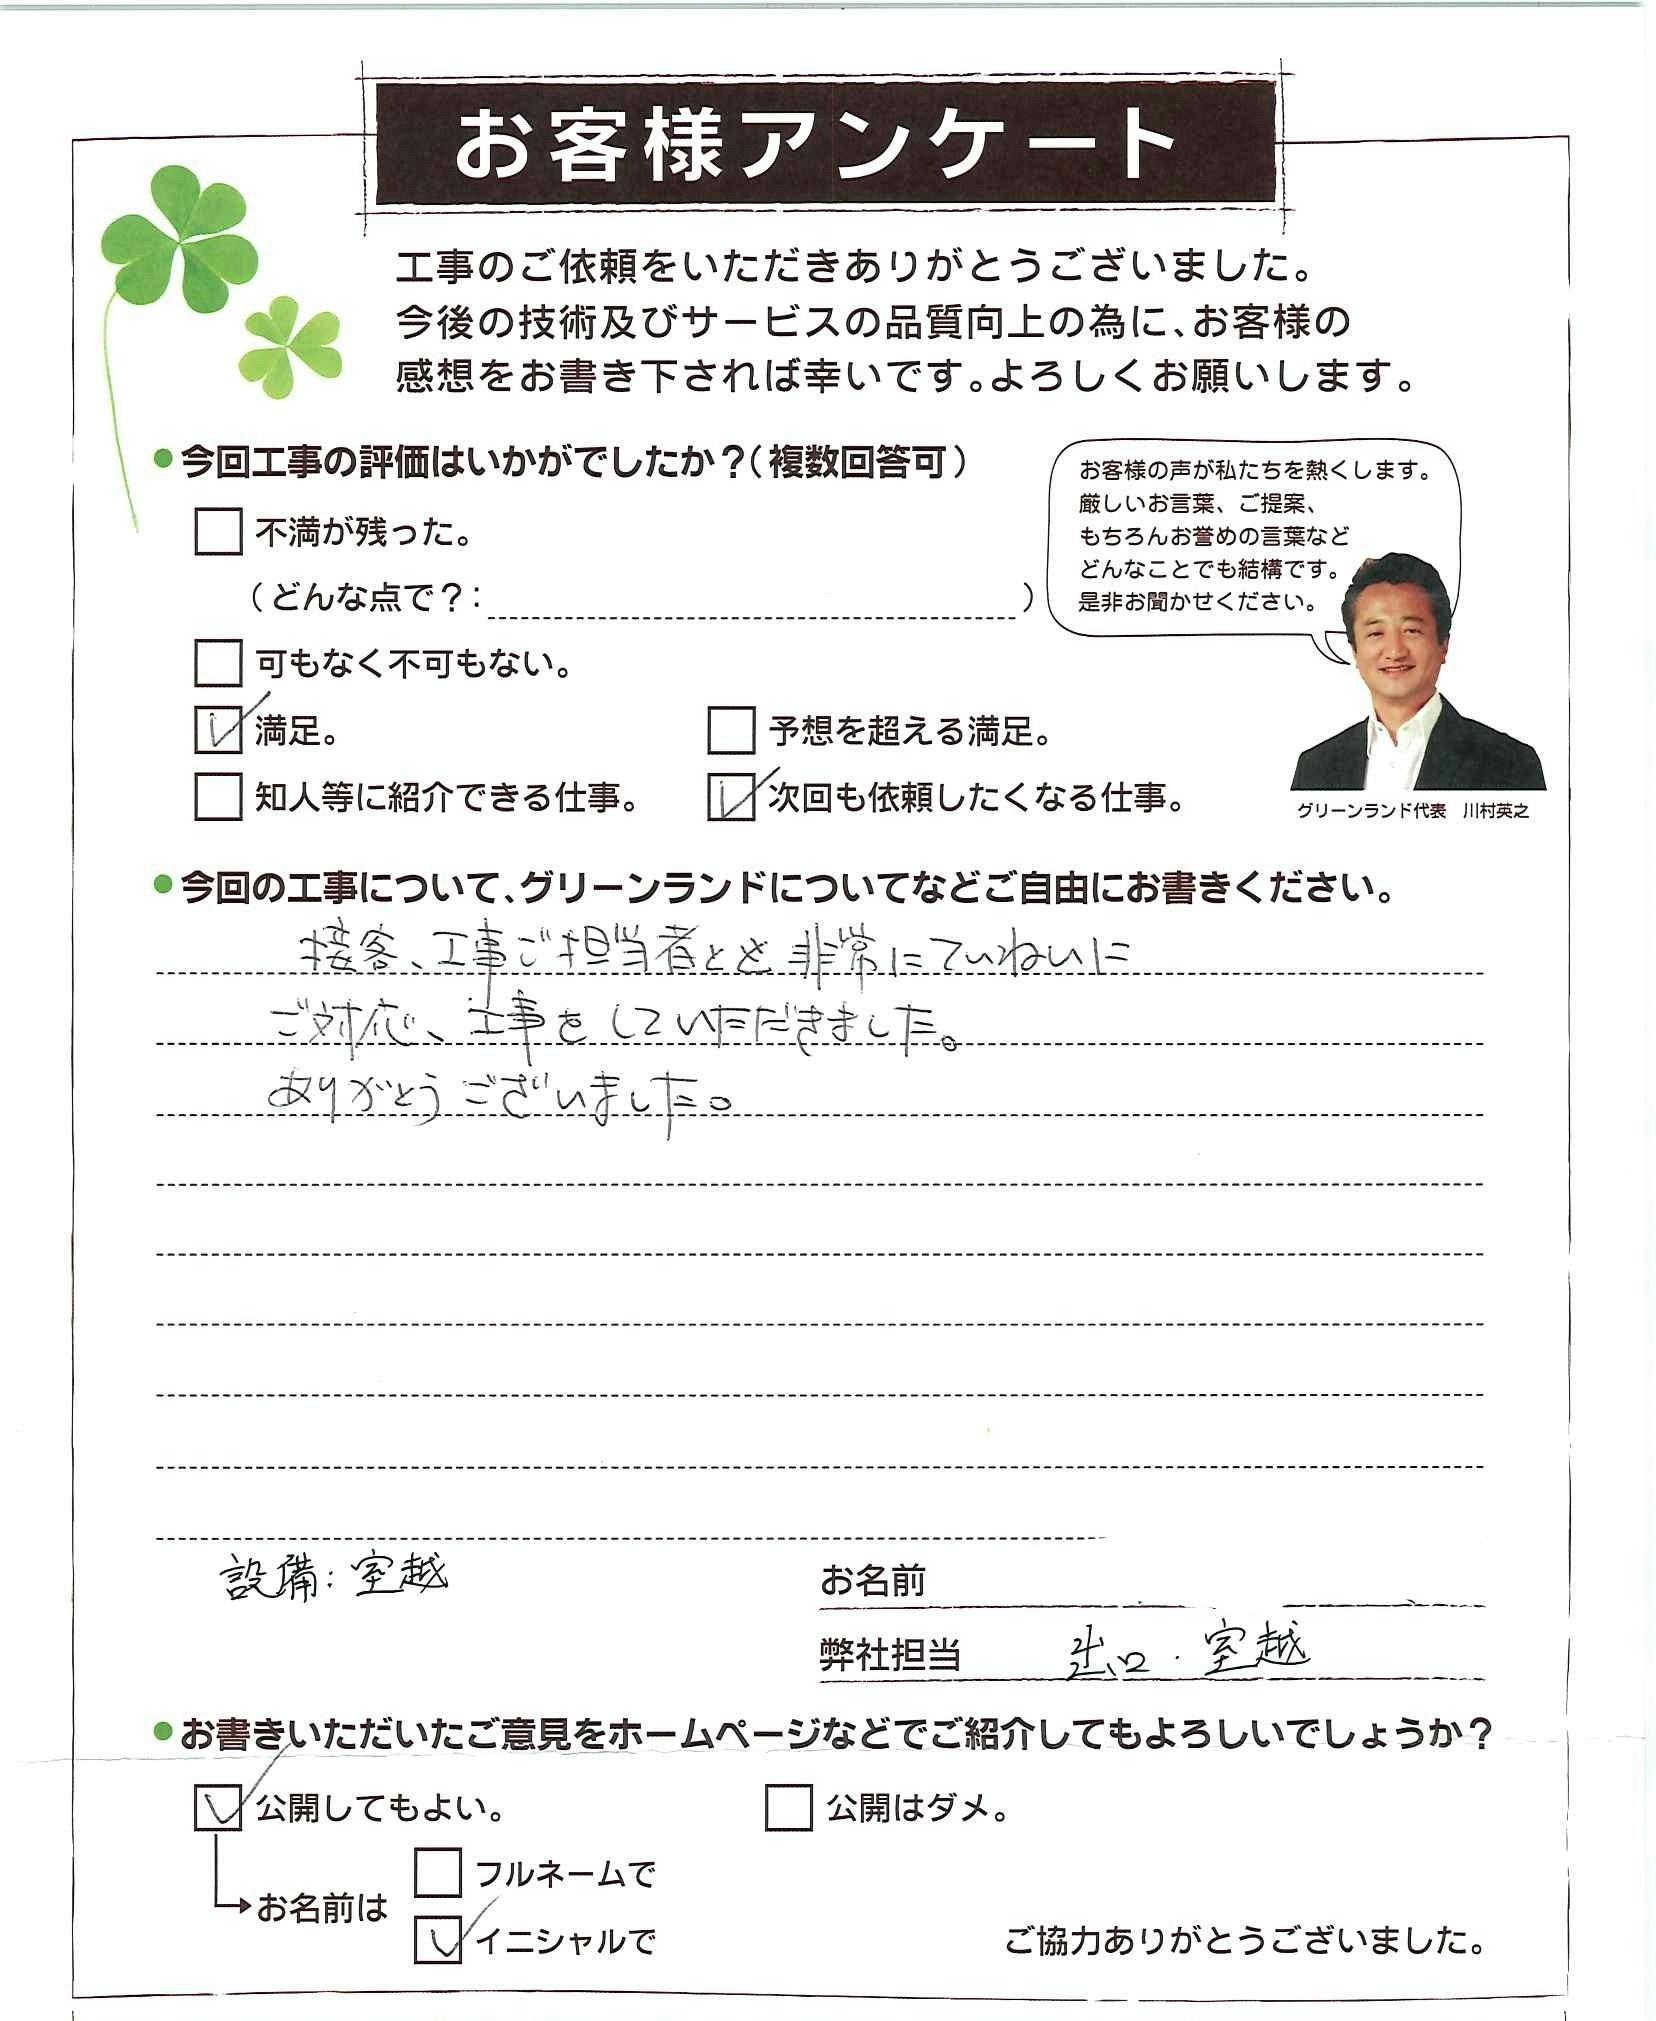 お客様アンケート
工事のご依頼をいただきありがとうございました。
今後の技術及びサービスの品質向上の為に、お客様の
感想をお書き下されば幸いです。よろしくお願いします。
●今回工事の評価はいかがでしたか？（複数回答可）
お客様の声が私たちを熱くします。
厳しいお言葉、ご提案、
もちろんお誉めの言葉など
どんなことでも結構です。
是非お聞かせください。
不満が残った。
（どんな点で？：　）
可もなく不可もない。
満足。
予想を超える満足。
知人等に紹介できる仕事。
次回も依頼したくなる仕事。
グリーンランド代表　川村英之
●今回の工事について、グリーンランドについてなどご自由にお書きください。
接客、工事ご担当者とも非常にていねいに
ご対応、工事をしていただきました。
ありがとうございました。
設備：室越
お名前
弊社担当　出口・室越
●お書きいただいたご意見をホームページなどでご紹介してもよろしいでしょうか？
公開してもよい。
公開はダメ。
フルネームで
お名前は
イニシャルで
ご協力ありがとうございました。